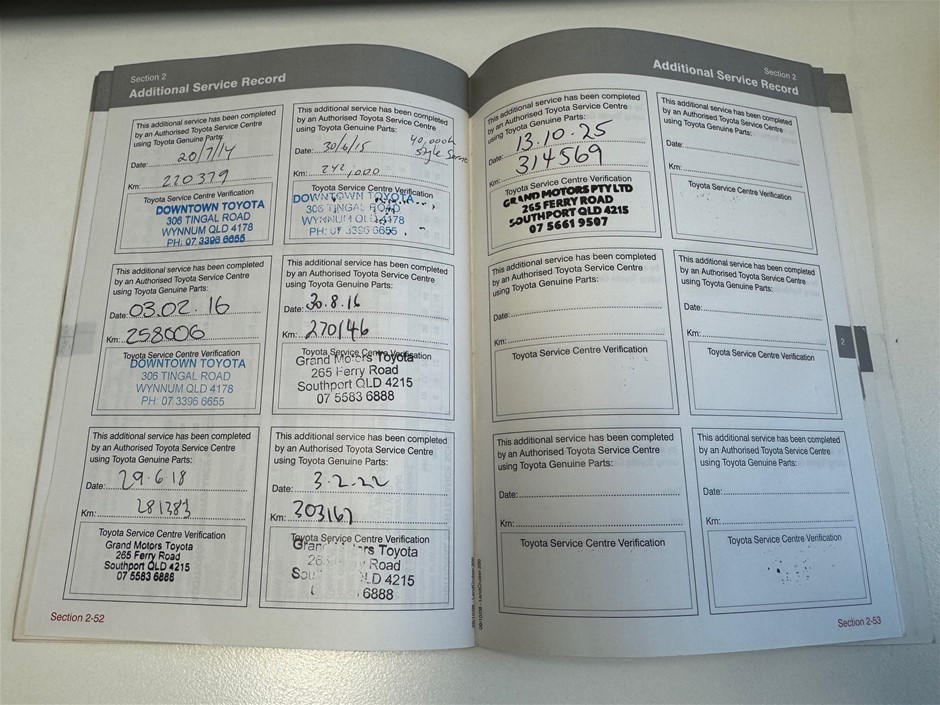 Section 2
Additional Service Record
This additional service has been completed
by an Authorised Toyota Service Centre
using Toyota Genuine Parts:
Date: 20/7/14
Km: 220379
Toyota Service Centre Verification
DOWNTOWN TOYOTA
306 TINGAL ROAD
WYNNUM QLD 4178
PH: 07 3396 6655
This additional service has been completed
by an Authorised Toyota Service Centre
using Toyota Genuine Parts:
40,000k
Style
Date: 30/6/15
Km: 242,000
Toyota Service Centre Verification
DOWNTOWN TOYOTA
306 TINGAL ROAD
WYNNUM QLD 4178
PH: 07 3396 6655
This additional service has been completed
by an Authorised Toyota Service Centre
using Toyota Genuine Parts:
Date: 03.02.16
Km: 258006
Toyota Service Centre Verification
DOWNTOWN TOYOTA
306 TINGAL ROAD
WYNNUM QLD 4178
PH: 07 3396 6655
This additional service has been completed
by an Authorised Toyota Service Centre
using Toyota Genuine Parts:
Date: 30.8.16
Km: 270146
Toyota Service Centre Verification
Grand Motors Toyota
265 Ferry Road
Southport QLD 4215
07 5583 6888
This additional service has been completed
by an Authorised Toyota Service Centre
using Toyota Genuine Parts:
Date: 29.6.18
Km: 281383
Toyota Service Centre Verification
Grand Motors Toyota
265 Ferry Road
Southport QLD 4215
07 5583 6888
This additional service has been completed
by an Authorised Toyota Service Centre
using Toyota Genuine Parts:
Date: 3.2.22
Km: 303167
Toyota Service Centre Verification
Toyota
Road
QLD 4215
6888
Section 2-52
Section 2
Additional Service Record
This additional service has been completed
by an Authorised Toyota Service Centre
using Toyota Genuine Parts:
Date: 13.10.25
Km: 314569
Toyota Service Centre Verification
GRAND MOTORS PTY LTD
265 FERRY ROAD
SOUTHPORT QLD 4215
07 5661 9507
This additional service has been completed
by an Authorised Toyota Service Centre
using Toyota Genuine Parts:
Date:
Km:
Toyota Service Centre Verification
This additional service has been completed
by an Authorised Toyota Service Centre
using Toyota Genuine Parts:
Date:
Km:
Toyota Service Centre Verification
This additional service has been completed
by an Authorised Toyota Service Centre
using Toyota Genuine Parts:
Date:
Km:
Toyota Service Centre Verification
This additional service has been completed
by an Authorised Toyota Service Centre
using Toyota Genuine Parts:
Date:
Km:
Toyota Service Centre Verification
This additional service has been completed
by an Authorised Toyota Service Centre
using Toyota Genuine Parts:
Date:
Km:
Toyota Service Centre Verification
2
Section 2-53